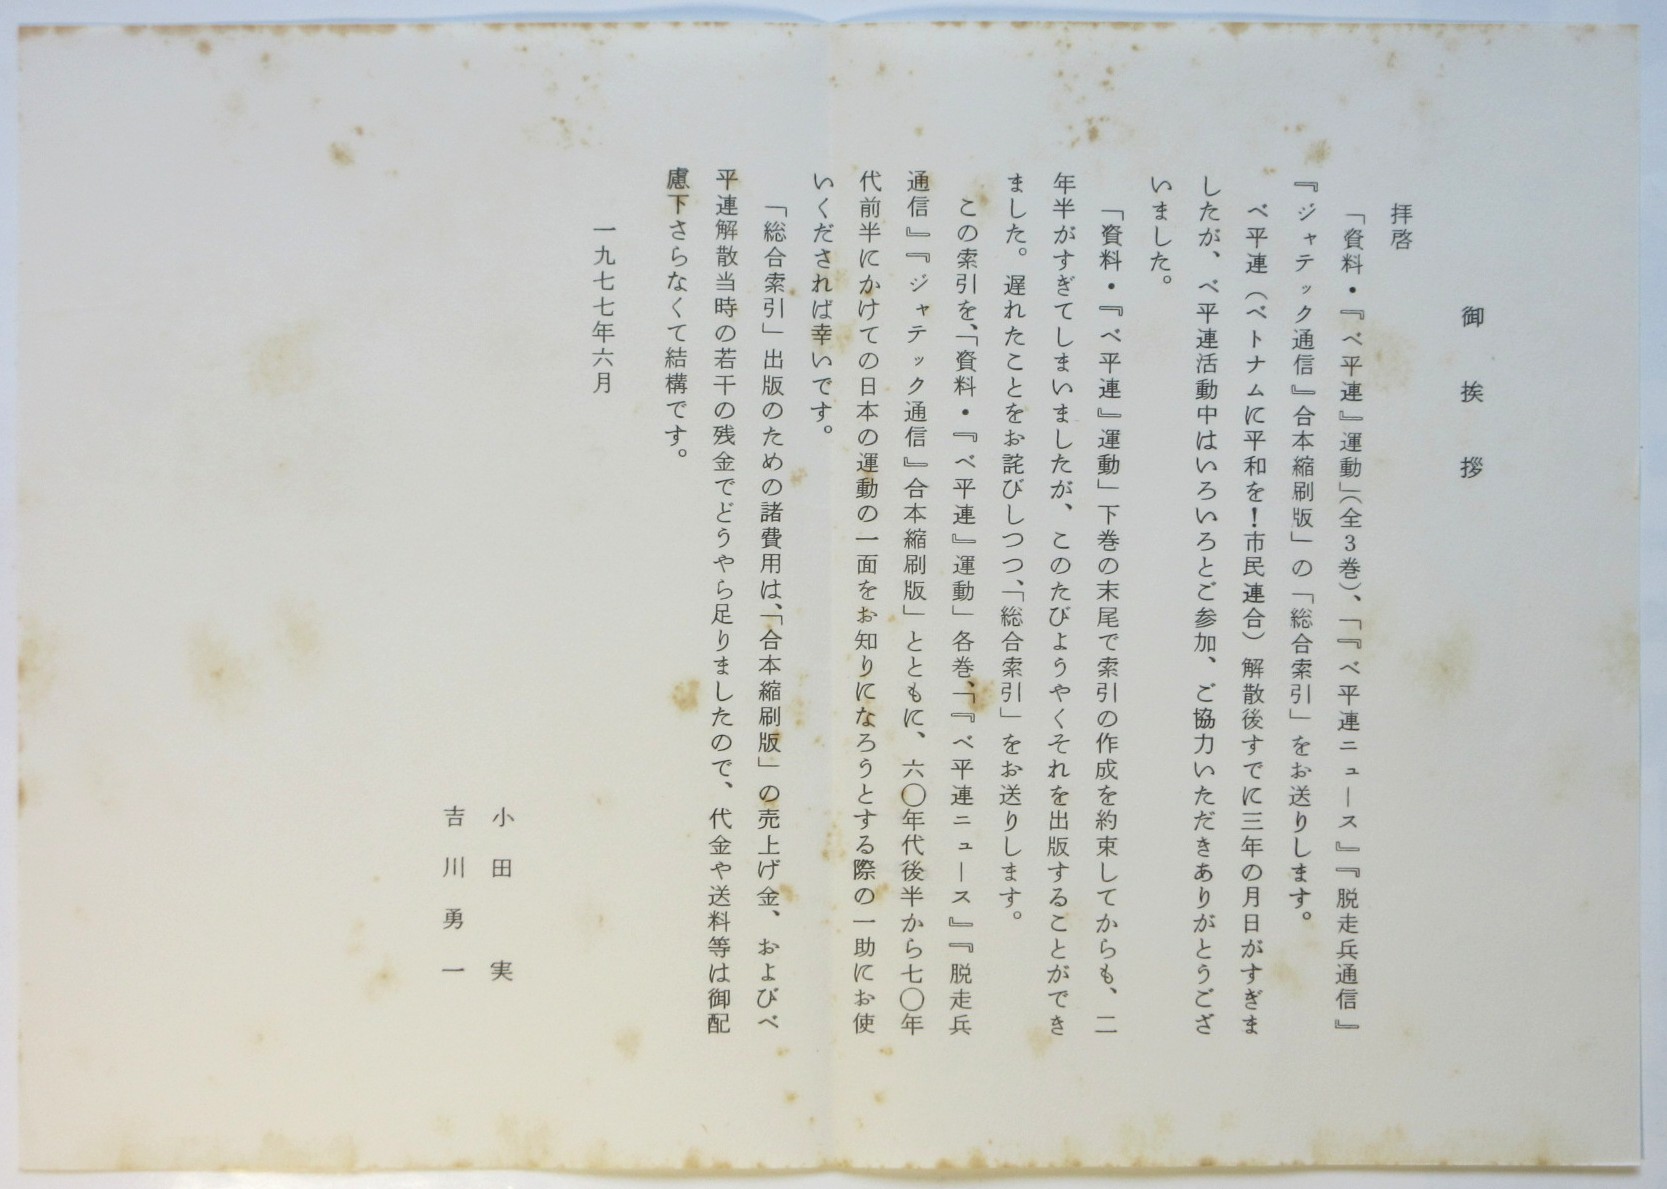 御挨拶
拝啓
「資料・『ベ平連』運動」（全3巻）、「『ベ平連ニュース』『脱走兵通信』
『ジャテック通信』合本縮刷版」の「総合索引」をお送りします。
ベ平連（ベトナムに平和を！市民連合）解散後すでに三年の月日がすぎま
したが、ベ平連活動中はいろいろとご参加、ご協力いただきありがとうござ
いました。
「資料・『ベ平連』運動」下巻の末尾で索引の作成を約束してからも、二
年半がすぎてしまいましたが、このたびようやくそれを出版することができ
ました。遅れたことをお詫びしつつ、「総合索引」をお送りします。
この索引を、「資料・『ベ平連』運動」各巻、「『ベ平連ニュース』『脱走兵
通信』『ジャテック通信』合本縮刷版」とともに、六〇年代後半から七〇年
代前半にかけての日本の運動の一面をお知りになろうとする際の一助にお使
いくだされば幸いです。
「総合索引」出版のための諸費用は、「合本縮刷版」の売上げ金、およびベ
平連解散当時の若干の残金でどうやら足りましたので、代金や送料等は御配
慮下さらなくて結構です。
一九七七年六月
小田実
吉川勇一